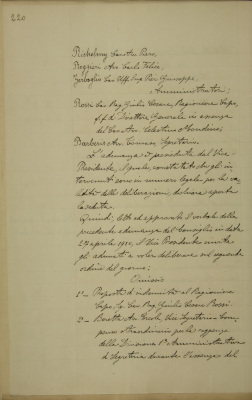 220
Richelmy Cav. Avv. Piero,
Avv. Carlo Felice,
Cav. Uff. Ing. Pier Giuseppe,
Amministratori;
Rossi Cav. Rag. Giulio Cesare, Ragioniere Capo,
f.f. di Direttore Generale in assenza
del Cav. Avv.
Barberis Avv. Tommaso, Segretario.
L'adunanza è presieduta dal Vice
Presidente, il quale, constatato che gli in-
tervenuti sono in numero legale per la va-
lidità delle deliberazioni, dichiara aperta
la seduta.
Quindi, letto ed approvato il verbale della
precedente adunanza del Consiglio in data
29 aprile, il Vice Presidente invita
gli adunati a voler deliberare sul seguente
ordine del giorno:
1° - Proposta di indennità al Ragioniere
Capo Sig. Cav. Rag. Giulio Cesare Rossi.
2° - Avv. Vice Segretario, Com-
penso straordinario per la reggenza
della Divisione 1ª Amministrativa
di Segreteria durante l'assenza del